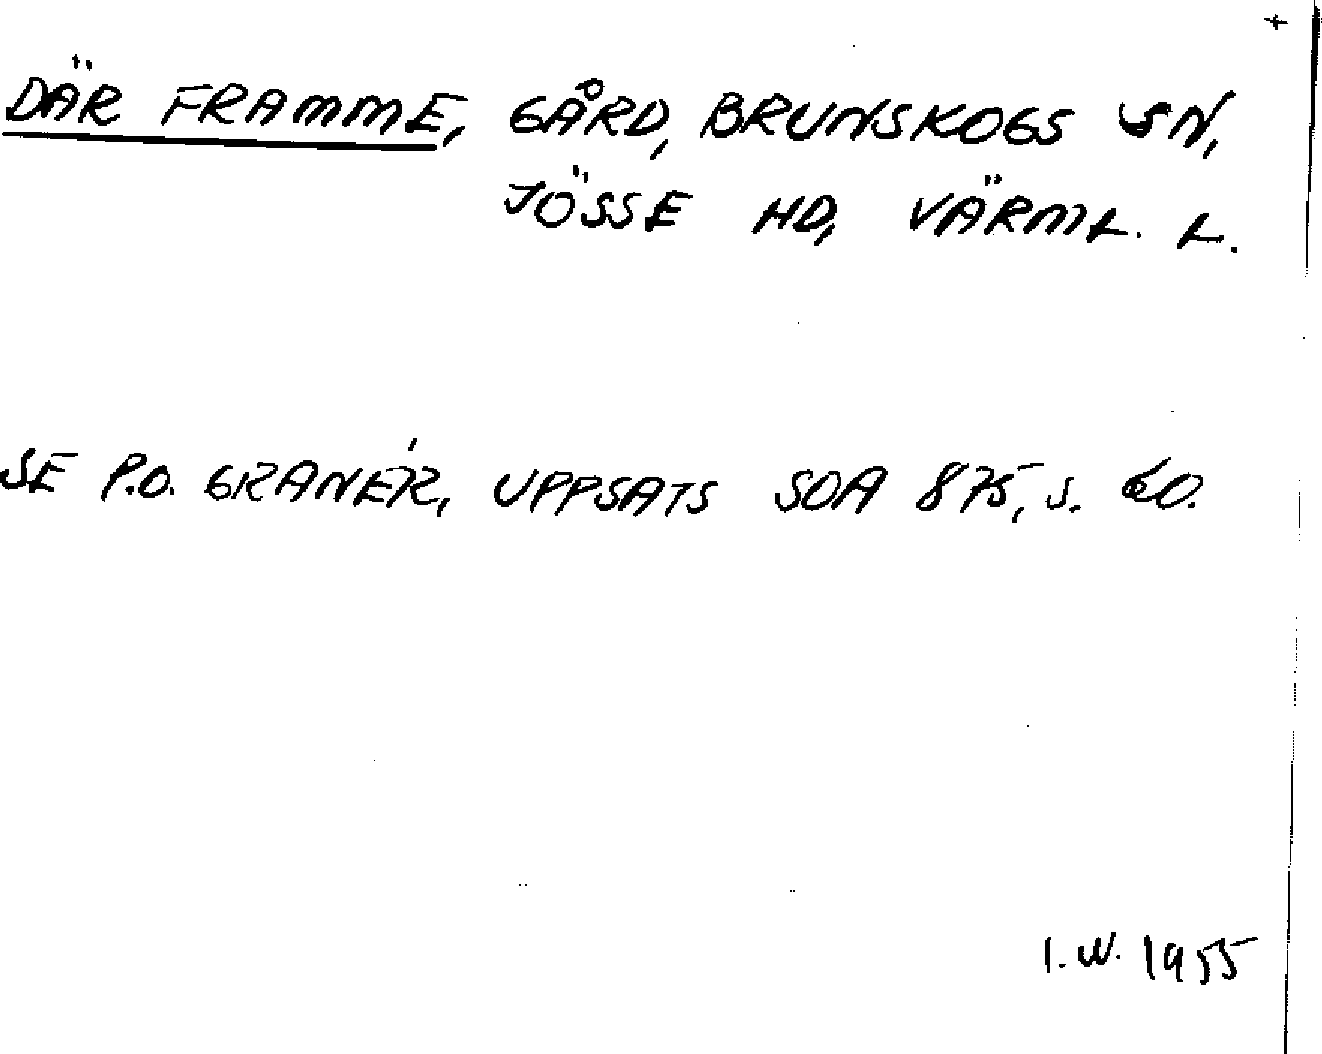 +
DÄR FRAMME, GÅRD, BRUNSKOGS SN,
JÖSSE HD, VÄRML. L.
SE P.O. GRANÉR, UPPSATS SOA 875, S. 60.
I.W. 1955